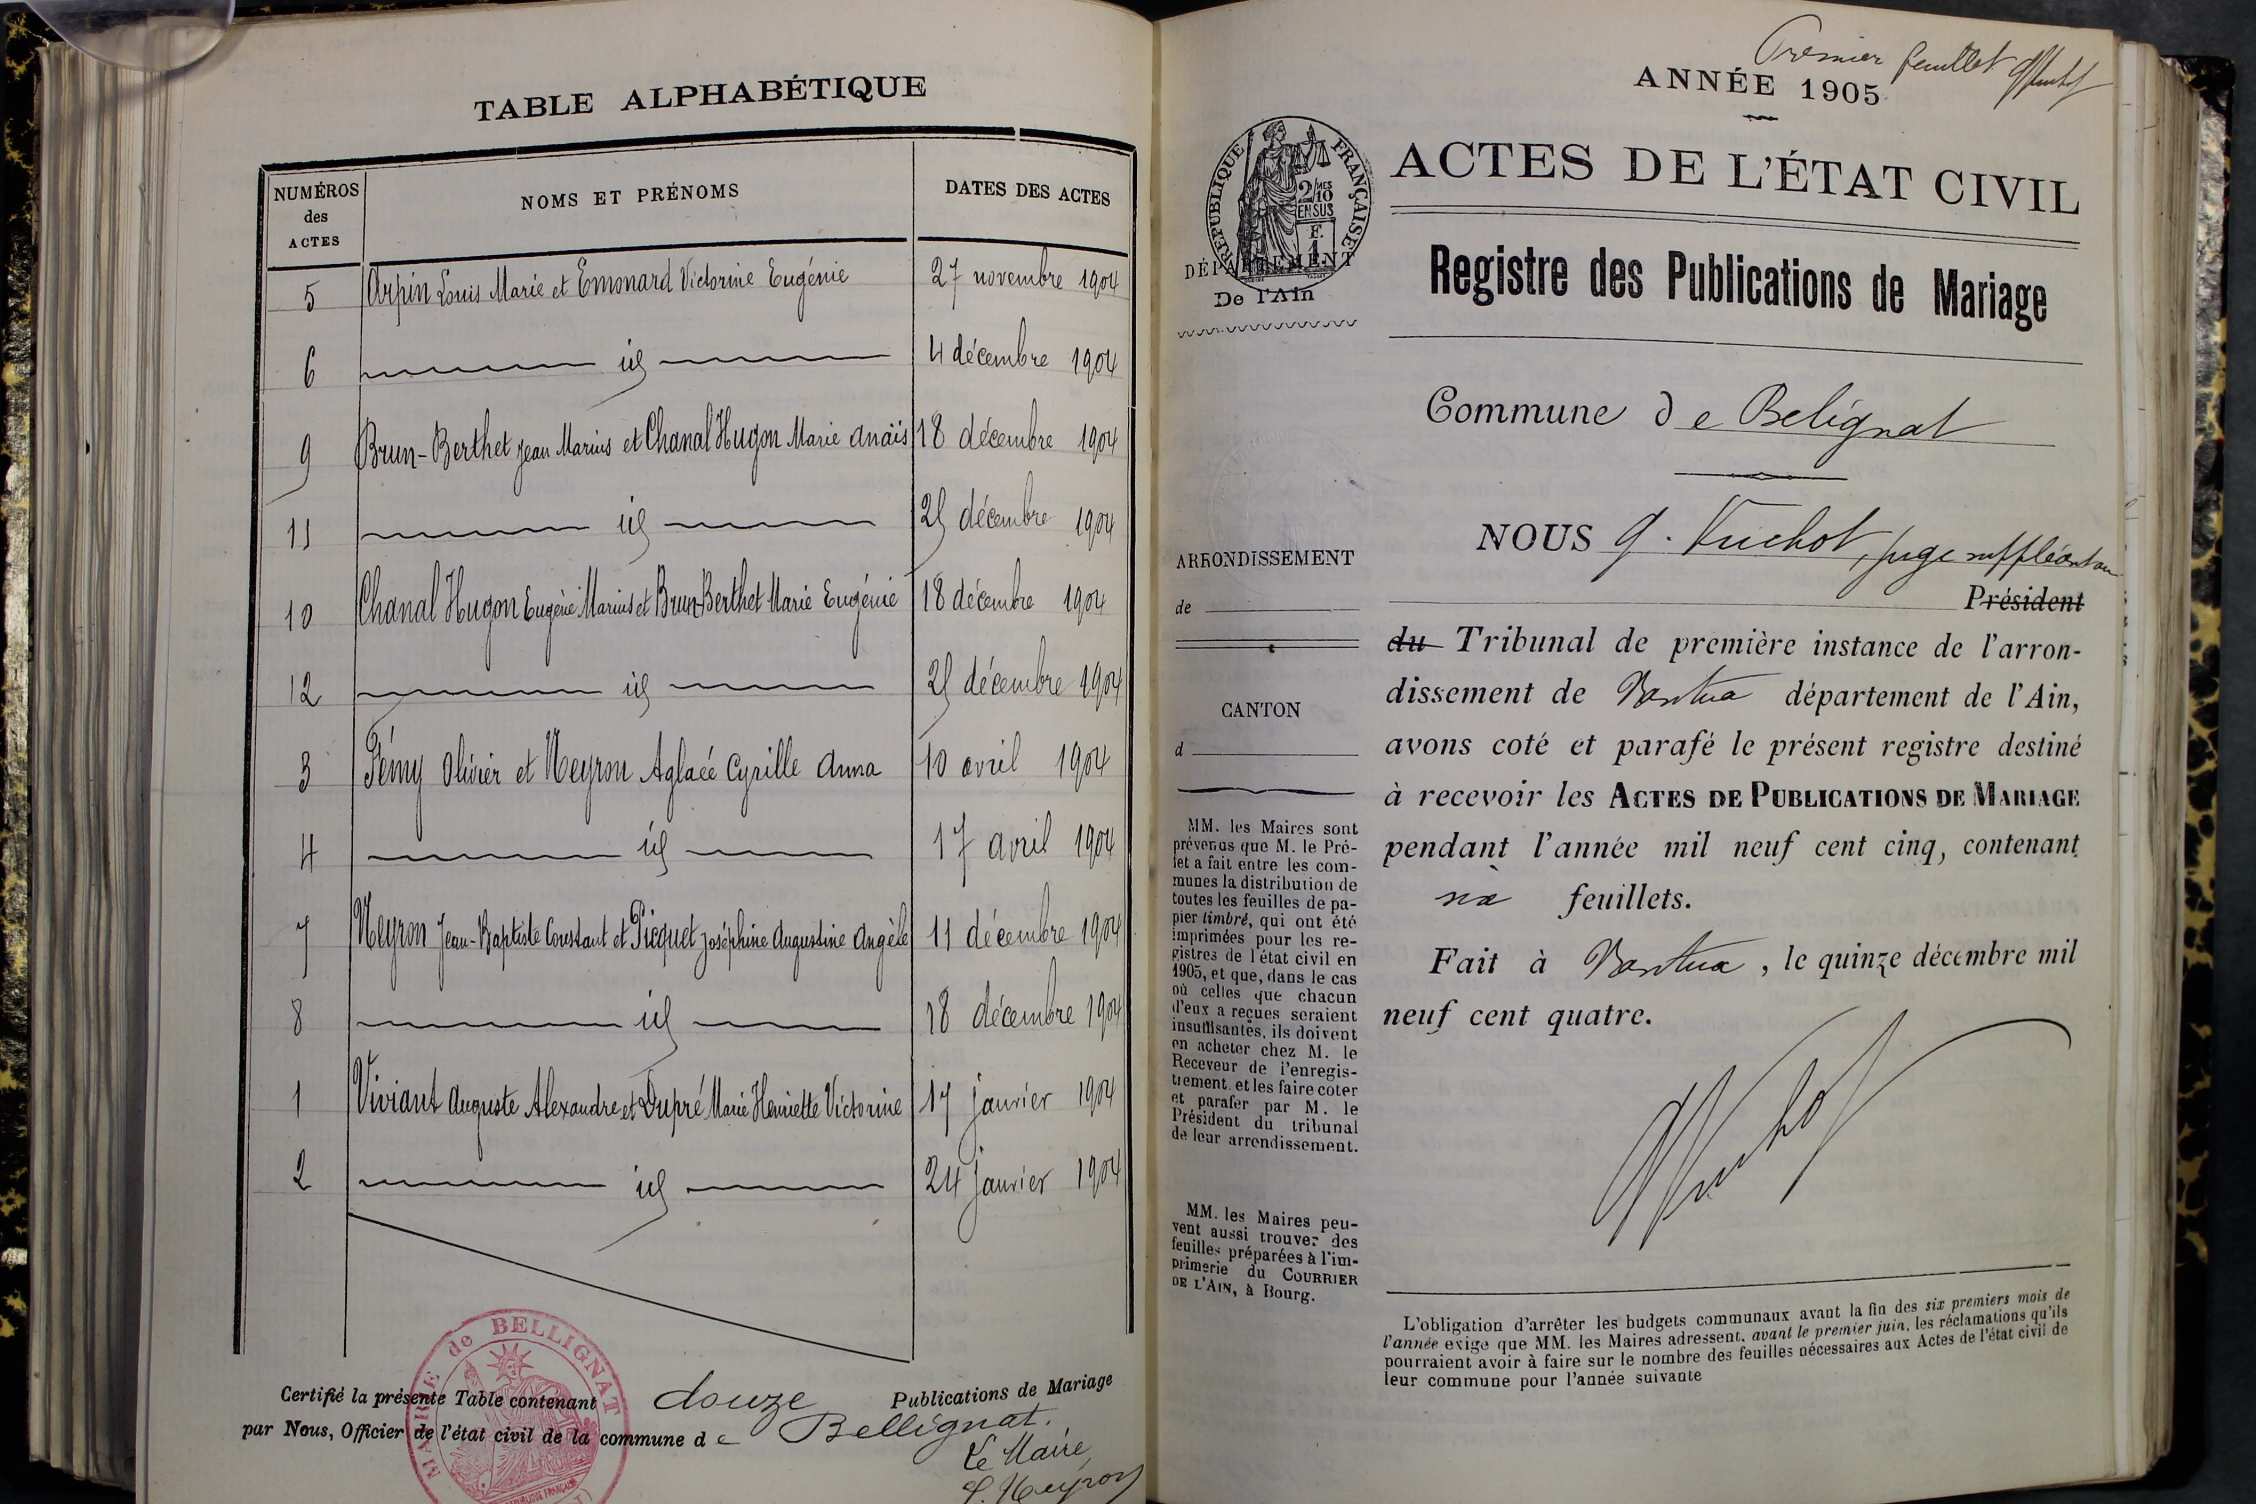 TABLE ALPHABÉTIQUE
NUMÉROS des ACTES
NOMS ET PRÉNOMS
DATES DES ACTES
5 Arpin Louis Marie et Emonard Victorine Eugénie 27 novembre 1904
6 id 4 décembre 1904
9 Brun-Berthet Jean Marius et Chanal Hugon Marie Anaïs 18 décembre 1904
11 id 25 décembre 1904
10 Chanal Hugon Eugène Marius et Brun-Berthet Marie Eugénie 18 décembre 1904
12 id 25 décembre 1904
3 Fémy Olivier et Neyron Aglaée Cyrille Anna 10 avril 1904
4 id 17 avril 1904
7 Neyron Jean-Baptiste Constant et Picquet Joséphine Augustine Angèle 11 décembre 1904
8 id 18 décembre 1904
1 Viviant Auguste Alexandre et Dupré Marie Henriette Victorine 17 janvier 1904
2 id 24 janvier 1904
MAIRIE de BELLIGNAT
Certifié la présente Table contenant douze Publications de Mariage
par Nous, Officier de l'état civil de la commune de Bellignat.
Le Maire
Neyron
Premier feuillet
ANNÉE 1905
RÉPUBLIQUE FRANÇAISE
2/10 MES
EN SUS
F.
1
DÉPARTEMENT
De l'Ain
ACTES DE L'ÉTAT CIVIL
Registre des Publications de Mariage
Commune de Belignat
ARRONDISSEMENT
de
CANTON
d
MM. les Maires sont
prévenus que M. le Pré-
fet a fait entre les com-
munes la distribution de
toutes les feuilles de pa-
pier timbré, qui ont été
imprimées pour les re-
gistres de l'état civil en
1905, et que, dans le cas
où celles que chacun
d'eux a reçues seraient
insuffisantes, ils doivent
en acheter chez M. le
Receveur de l'enregis-
trement et les faire coter
et parafer par M. le
Président du tribunal
de leur arrondissement.
MM. les Maires peu-
vent aussi trouver des
feuilles préparées à l'im-
primerie du COURRIER
DE L'AIN, à Bourg.
NOUS juge suppléant au
Président
du Tribunal de première instance de l'arron-
dissement de Nantua département de l'Ain,
avons coté et parafé le présent registre destiné
à recevoir les ACTES DE PUBLICATIONS DE MARIAGE
pendant l'année mil neuf cent cinq, contenant
six feuillets.
Fait à Nantua, le quinze décembre mil
neuf cent quatre.
L'obligation d'arrêter les budgets communaux avant la fin des six premiers mois de
l'année exige que MM. les Maires adressent, avant le premier juin, les réclamations qu'ils
pourraient avoir à faire sur le nombre des feuilles nécessaires aux Actes de l'état civil de
leur commune pour l'année suivante